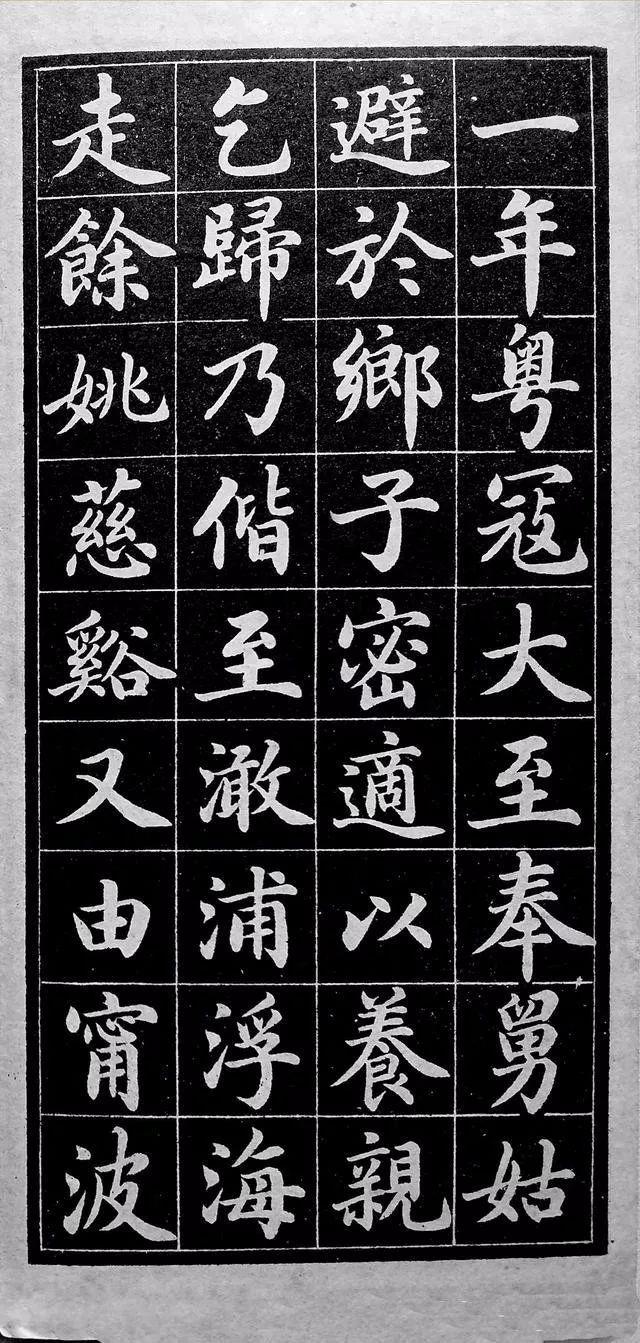 一年粵寇大至奉舅姑
避於鄉子密適以養親
乞歸乃偕至澉浦浮海
走餘姚慈谿又由甯波